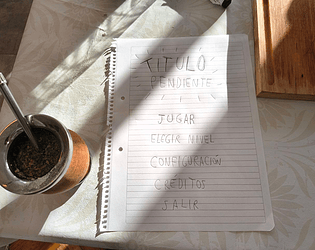 TITULO
PENDIENTE
JUGAR
ELEGIR NIVEL
CONFIGURACIÓN
CREDITOS
SALIR